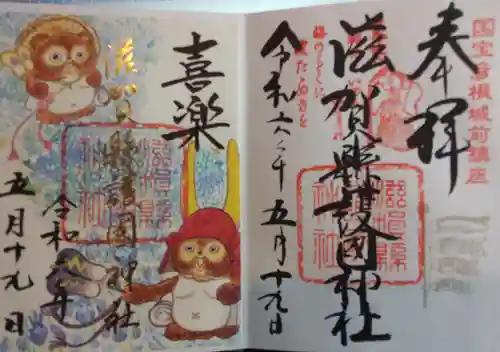 国宝彦根城前鎮座
奉拝
滋賀縣護國神社
令和六年五月十九日
滋賀縣護國神社
喜楽
滋賀縣護國神社
滋賀縣護國神社
令和六年
五月十九日